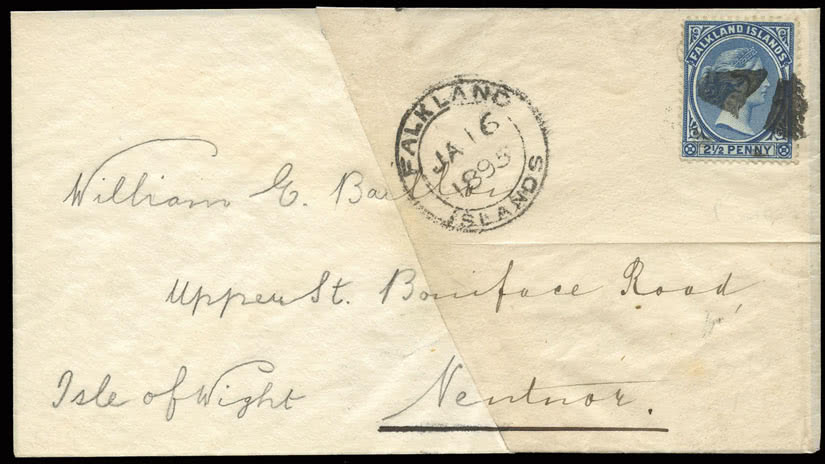 FALKLAND ISLANDS
2½ PENNY
FALKLAND
JA 16
1895
ISLANDS
William G.
Upper St. Boniface Road,
Isle of Wight Ventnor.